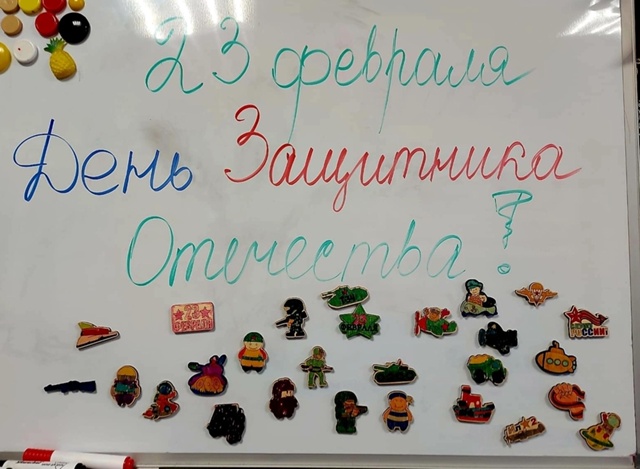 23 февраля
День Защитника
Отечества!
23
ФЕВРАЛЯ
ФЕВРАЛЯ
РОССИИ